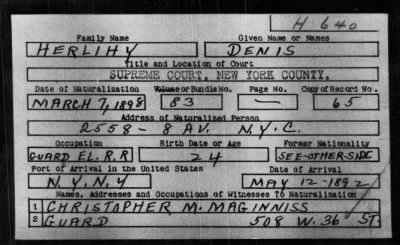 H 640
Family Name Given Name or Names
HERLIHY DENIS
Title and Location of Court
SUPREME COURT, NEW YORK COUNTY.
Date of Naturalization Volume or Bundle No. Page No. Copy of Record No.
MARCH 7, 1898 83 — 65
Address of Naturalized Person
2558 - 8 AV. N.Y.C.
Occupation Birth Date or Age Former Nationality
GUARD EL. R.R 24 SEE-OTHER-SIDE
Port of Arrival in the United States Date of Arrival
N.Y. N.Y MAY 12-1892
Names, Addresses and Occupations of Witnesses To Naturalization
1 CHRISTOPHER M. MAGINNISS
2 GUARD 508 W. 36 ST.